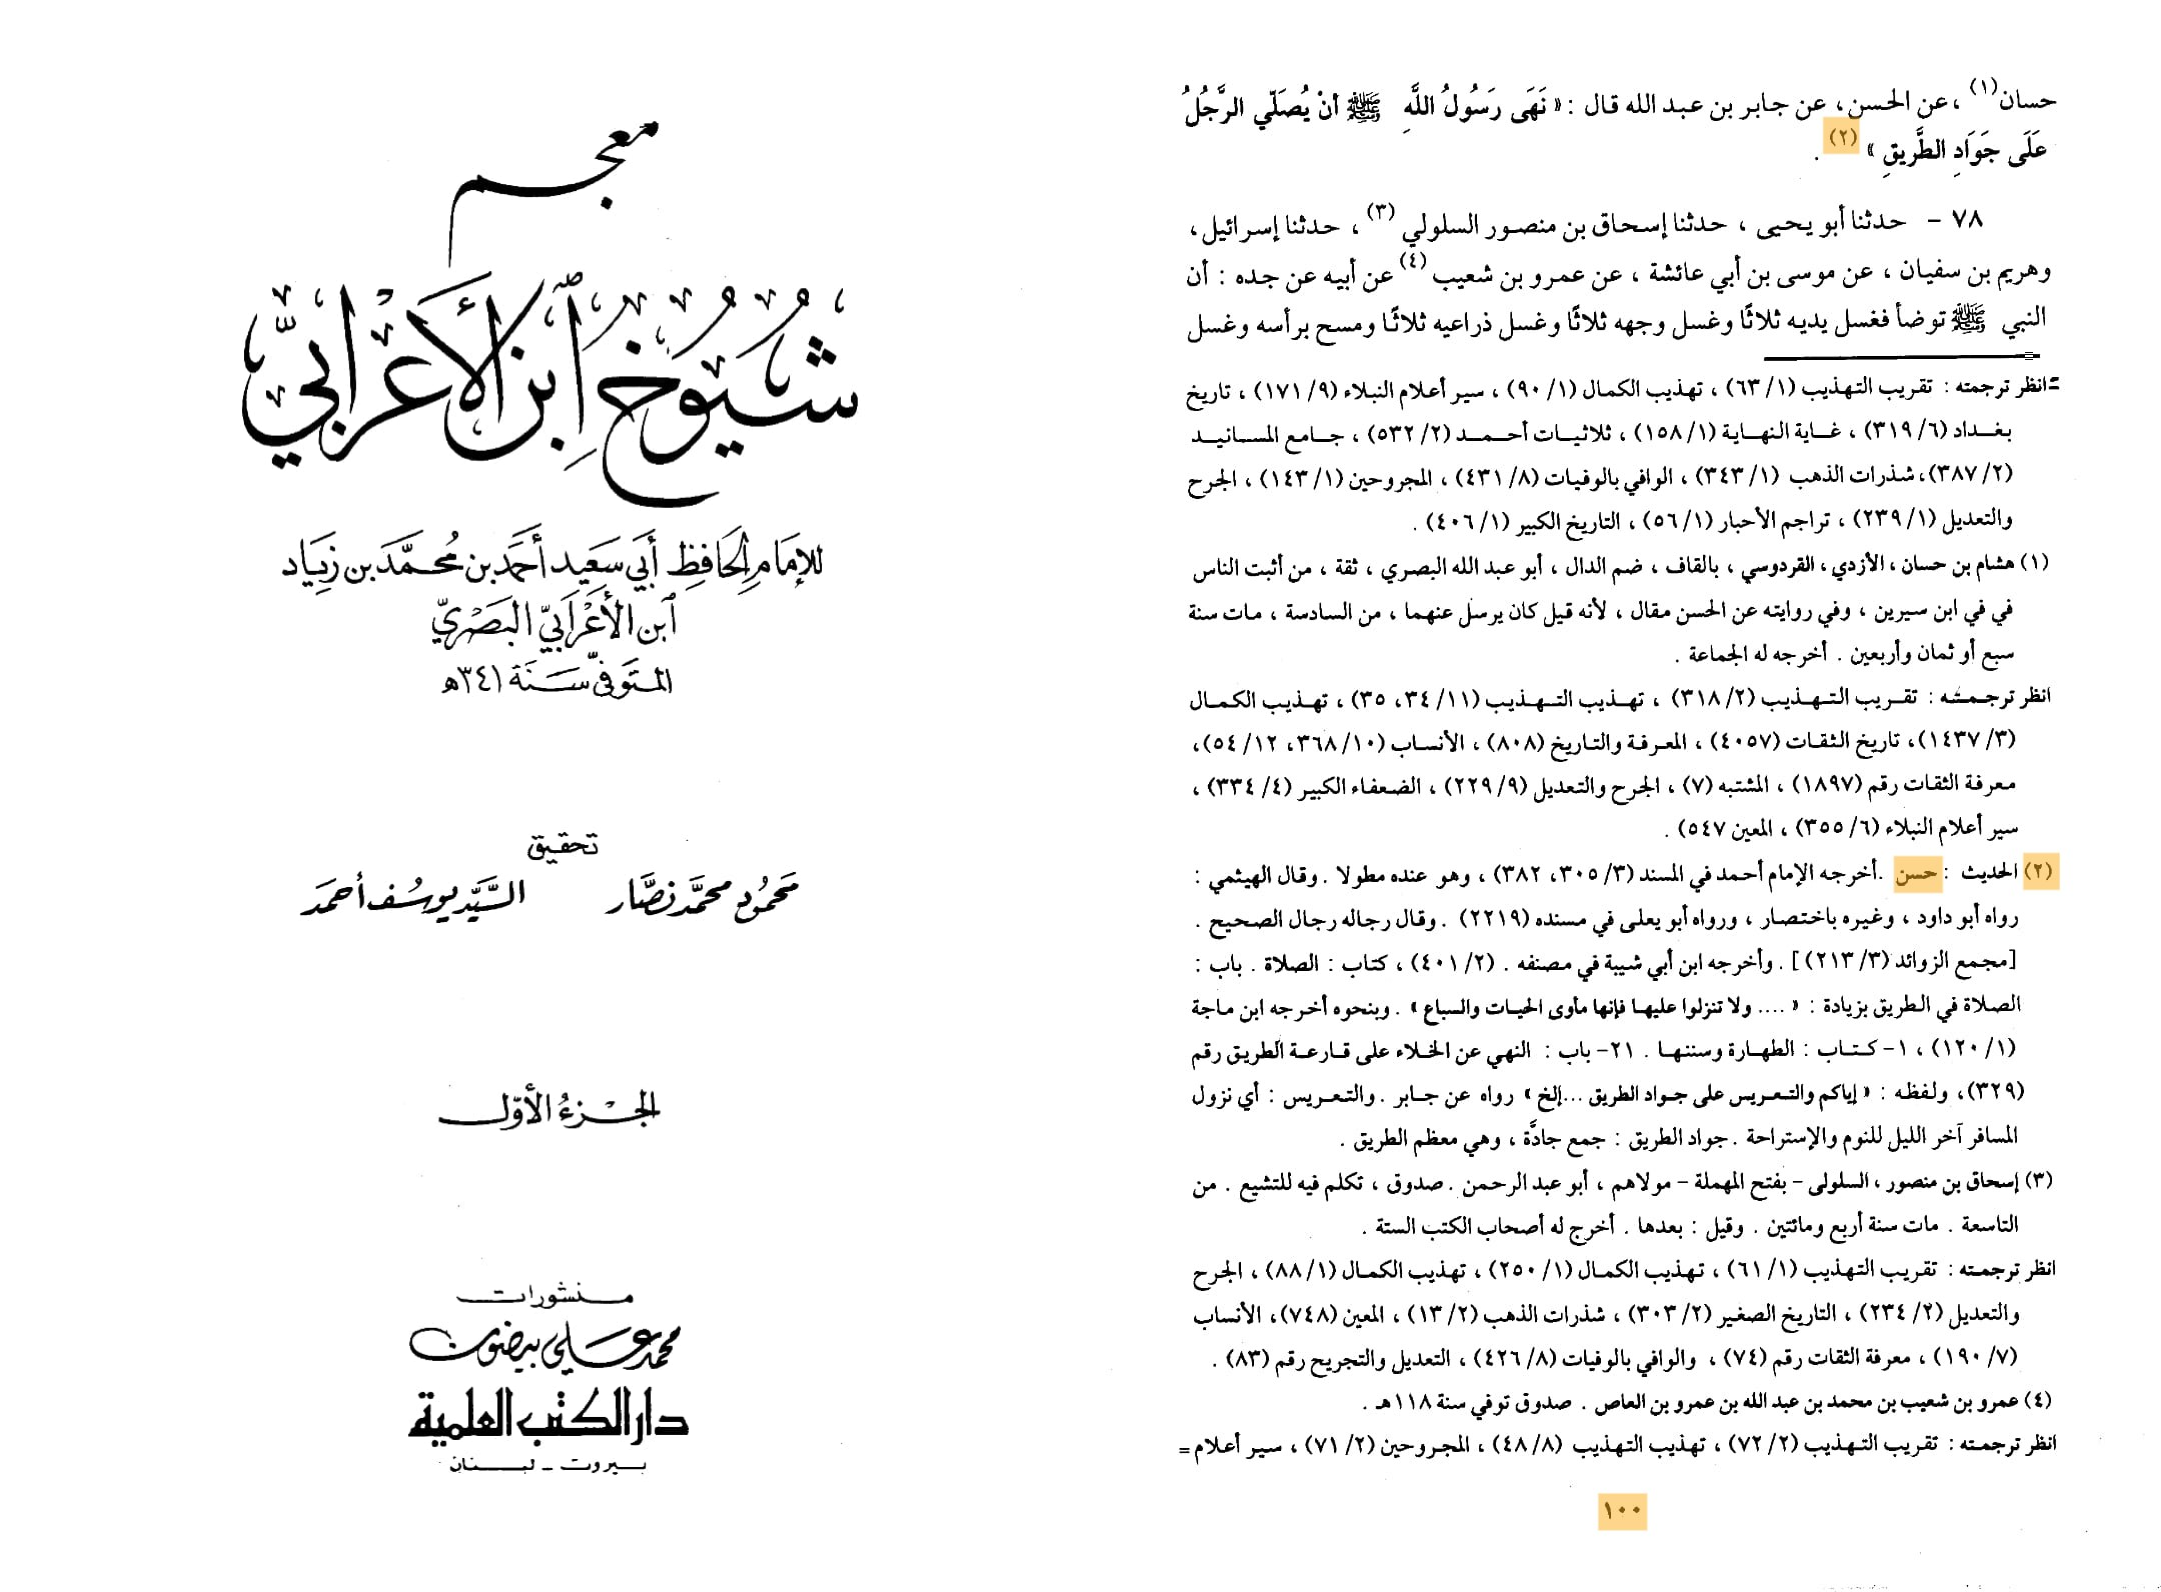 معجم
شُيُوخ ابن الأَعْرابيّ
للإمَام الحَافِظ أَبي سَعِيد أحمَد بن مُحَمَّد بن زيَاد
ابن الأَعْرَابيّ البَصْريّ
المتَوفىّ سَنَة ٣٤١ھ
تحقيق
محمُود محمَّد نصَّار السَّيّد يوسُف أحمَد
الجزءُ الأوّل
منشورات
محمد علي بيضون
دار الكتب العلمية
بيروت - لبنان
حسان(١) ، عن الحسن، عن جابر بن عبد الله قال : « نَهَى رَسُولُ اللَّهِ ﷺ أنْ يُصَلّي الرَّجُلُ
عَلَى جَوَادِ الطَّرِيقِ » (٢) .
٧٨ - حدثنا أبو يحيى ، حدثنا إسحاق بن منصور السلولي (٣) ، حدثنا إسرائيل،
وهريم بن سفيان ، عن موسى بن أبي عائشة ، عن عمرو بن شعيب (٤) عن أبيه عن جده : أن
النبي ﷺ توضأ فغسل يديه ثلاثًا وغسل وجهه ثلاثًا وغسل ذراعيه ثلاثًا ومسح برأسه وغسل
=انظر ترجمته : تقريب التهذيب (١/ ٦٣) ، تهذيب الكمال (١/ ٩٠) ، سير أعلام النبلاء (٩/ ١٧١) ، تاريخ
بغداد (٦/ ٣١٩) ، غاية النهاية (١/ ١٥٨) ، ثلاثيات أحمد (٢/ ٥٣٢) ، جامع المسانيد
(٢/ ٣٨٧)، شذرات الذهب (١/ ٣٤٣) ، الوافي بالوفيات (٨/ ٤٣١) ، المجروحين (١/ ١٤٣) ، الجرح
والتعديل (١/ ٢٣٩) ، تراجم الأحبار (١/ ٥٦) ، التاريخ الكبير (١/ ٤٠٦) .
(١) هشام بن حسان ، الأزدي ، القردوسي ، بالقاف ، ضم الدال ، أبو عبد الله البصري ، ثقة ، من أثبت الناس
في في ابن سيرين ، وفي روايته عن الحسن مقال ، لأنه قيل كان يرسل عنهما ، من السادسة ، مات سنة
سبع أو ثمان وأربعين . أخرجه له الجماعة .
انظر ترجمته : تقريب التهذيب (٢/ ٣١٨) ، تهذيب التهذيب (١١/ ٣٤، ٣٥) ، تهذيب الكمال
(٣/ ١٤٣٧)، تاريخ الثقات (٤٠٥٧) ، المعرفة والتاريخ (٨٠٨) ، الأنساب (١٠/ ٣٦٨، ١٢/ ٥٤)،
معرفة الثقات رقم (١٨٩٧) ، المشتبه (٧) ، الجرح والتعديل (٩/ ٢٢٩) ، الضعفاء الكبير (٤/ ٣٣٤) ،
سير أعلام النبلاء (٦/ ٣٥٥) ، المعين ٥٤٧) .
(٢) الحديث : حسن .أخرجه الإمام أحمد في المسند (٣/ ٣٠٥، ٣٨٢) ، وهو عنده مطولا . وقال الهيثمي :
رواه أبو داود ، وغيره باختصار ، ورواه أبو يعلى في مسنده (٢٢١٩) . وقال رجاله رجال الصحيح .
[مجمع الزوائد (٣/ ٢١٣)] . وأخرجه ابن أبي شيبة في مصنفه . (٢/ ٤٠١) ، كتاب : الصلاة . باب :
الصلاة في الطريق بزيادة : « .... ولا تنزلوا عليها فإنها مأوى الحيات والسباع » . وبنحوه أخرجه ابن ماجة
(١/ ١٢٠) ، ١- كتاب : الطهارة وسننها . ٢١- باب : النهي عن الخلاء على قارعة الطريق رقم
(٣٢٩)، ولفظه : « إياكم والتعريس على جواد الطريق ...إلخ » رواه عن جابر . والتعريس : أي نزول
المسافر آخر الليل للنوم والإستراحة . جواد الطريق : جمع جادَّة ، وهي معظم الطريق .
(٣) إسحاق بن منصور ، السلولى - بفتح المهملة - مولاهم ، أبو عبد الرحمن . صدوق ، تكلم فيه للتشيع . من
التاسعة . مات سنة أربع ومائتين . وقيل : بعدها . أخرج له أصحاب الكتب الستة .
انظر ترجمته : تقريب التهذيب (١/ ٦١) ، تهذيب الكمال (١/ ٢٥٠) ، تهذيب الكمال (١/ ٨٨) ، الجرح
والتعديل (٢/ ٢٣٤) ، التاريخ الصغير (٢/ ٣٠٣) ، شذرات الذهب (٢/ ١٣) ، المعين (٧٤٨)، الأنساب
(٧/ ١٩٠) ، معرفة الثقات رقم (٧٤) ، والوافي بالوفيات (٨/ ٤٢٦) ، التعديل والتجريح رقم (٨٣) .
(٤) عمرو بن شعيب بن محمد بن عبد الله بن عمرو بن العاص . صدوق توفي سنة ١١٨هـ .
انظر ترجمته : تقريب التهذيب (٢/ ٧٢) ، تهذيب التهذيب (٨/ ٤٨) ، المجروحين (٢/ ٧١) ، سير أعلام =
١٠٠